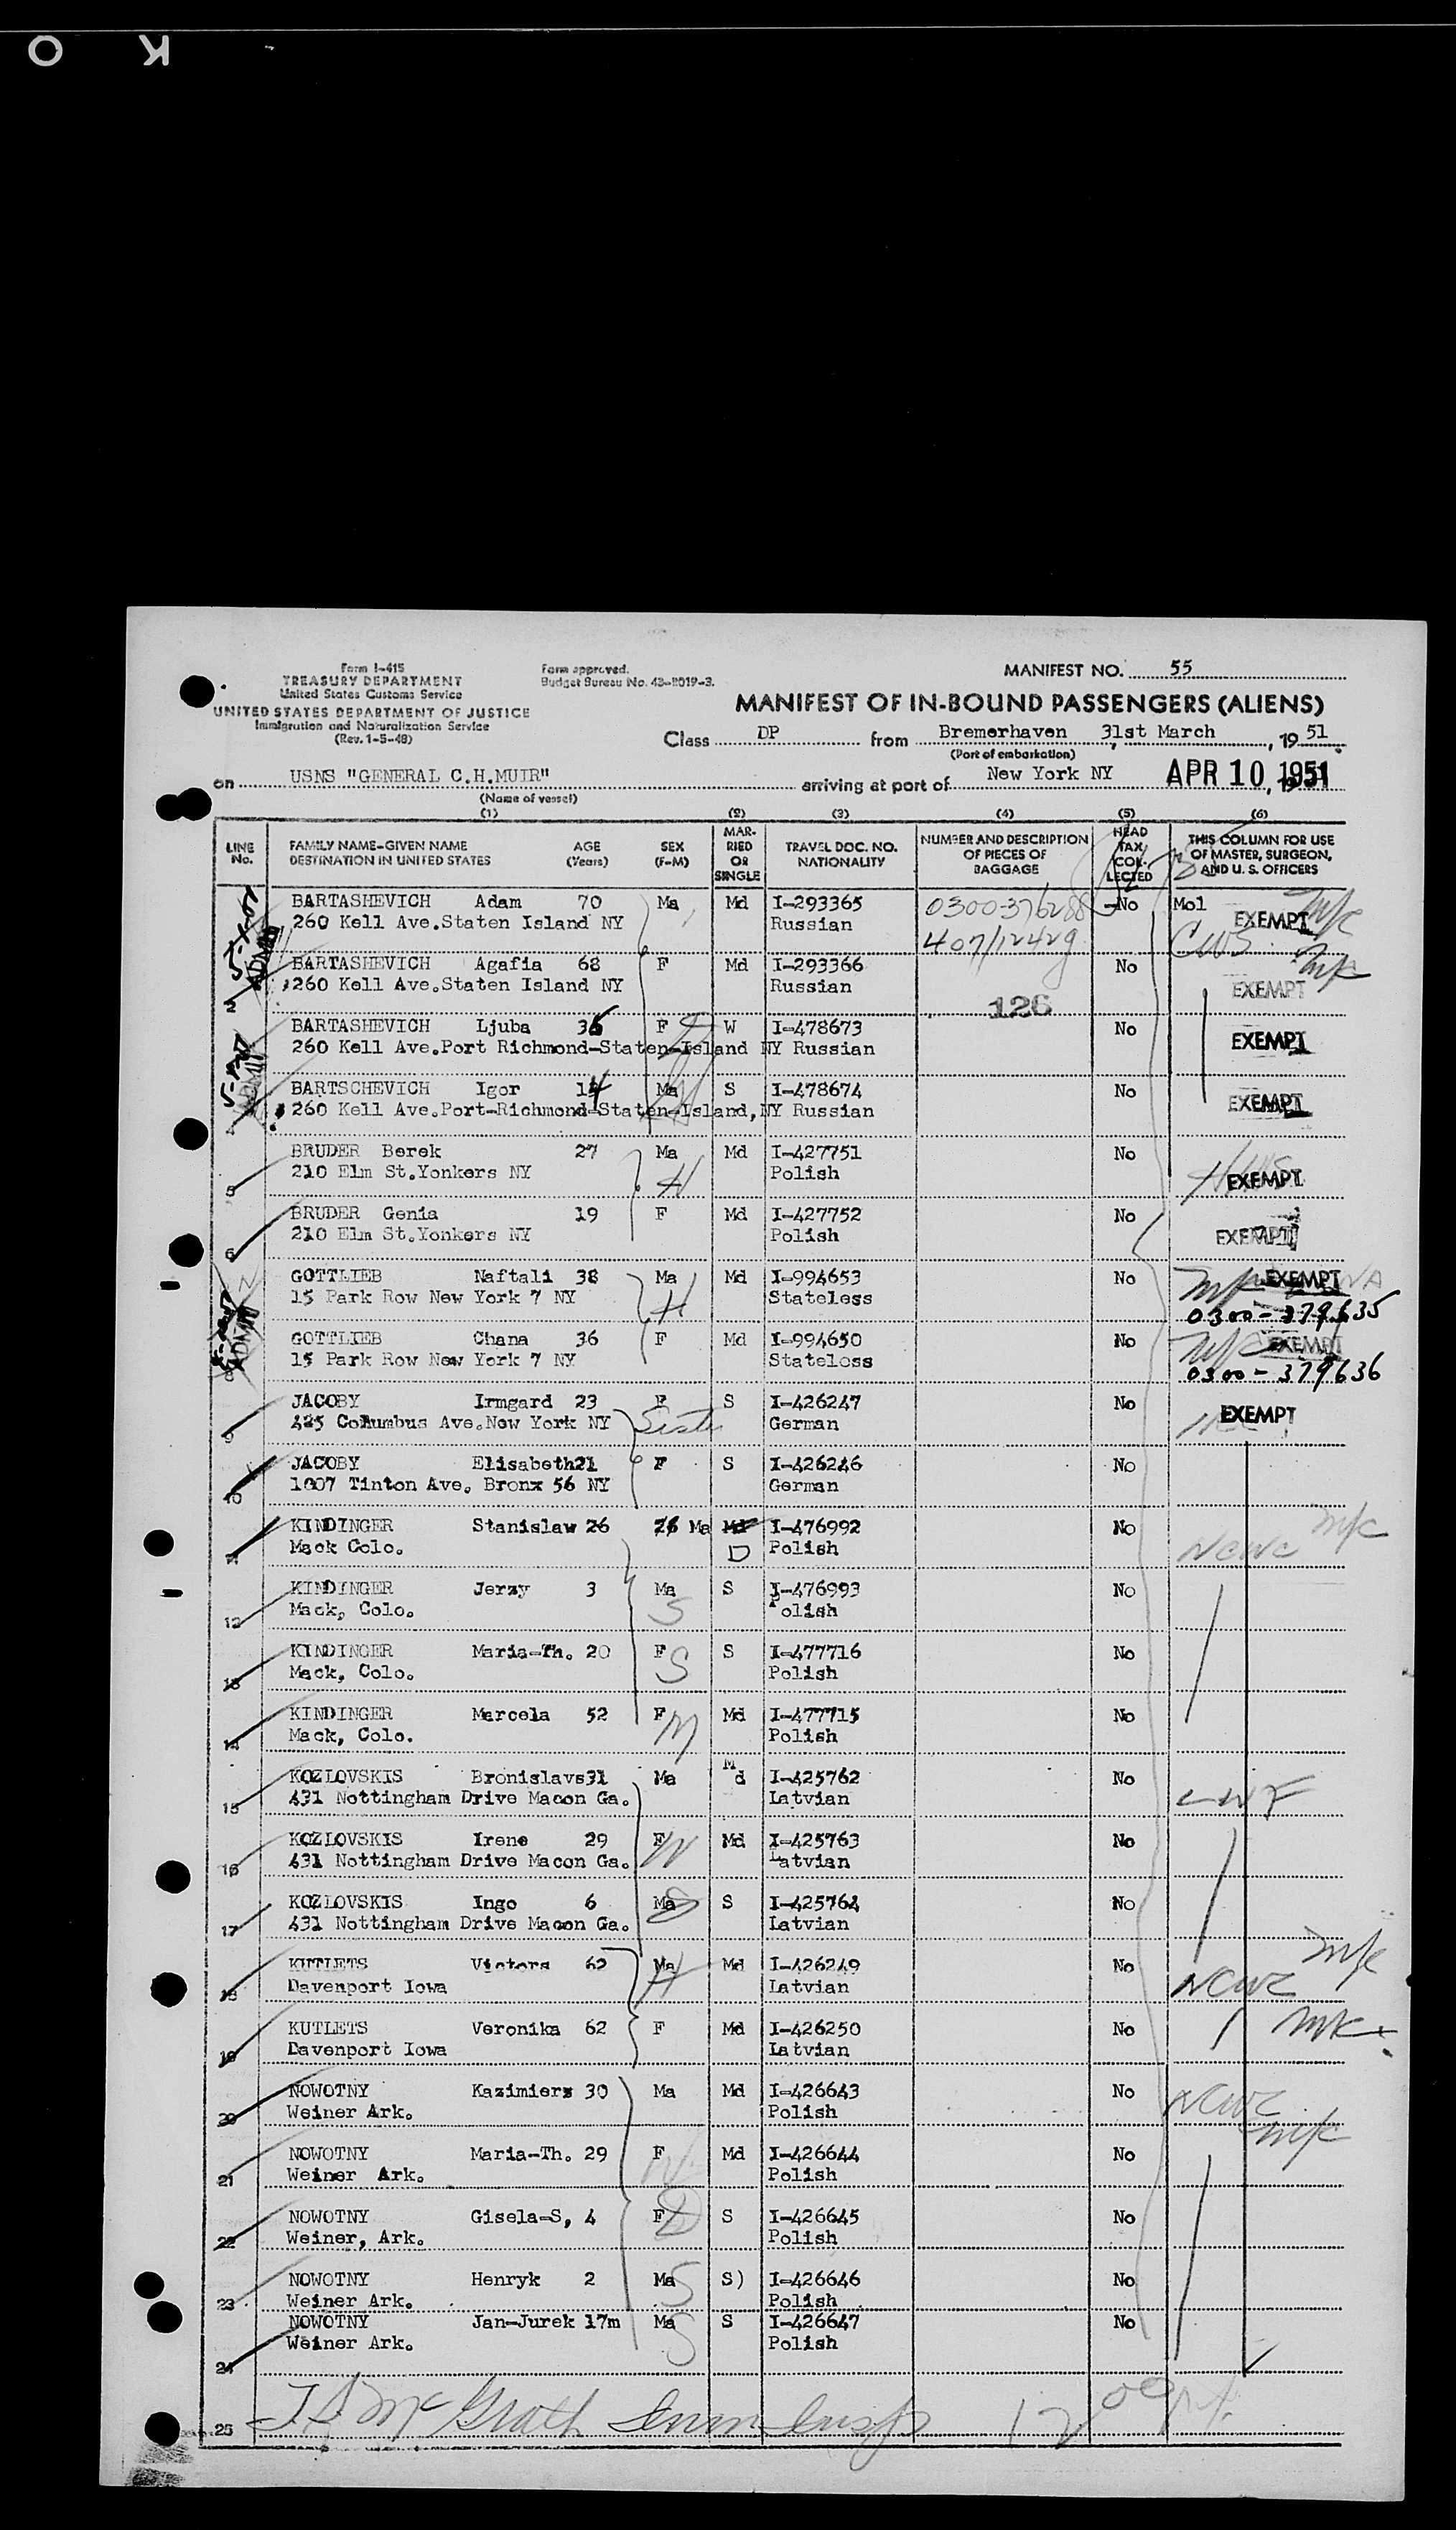 O K
Form I-415
TREASURY DEPARTMENT
United States Customs Service
UNITED STATES DEPARTMENT OF JUSTICE
Immigration and Naturalization Service
(Rev. 1-5-48)
Form approved.
Budget Bureau No. 43-R019-3.
MANIFEST NO. 55
MANIFEST OF IN-BOUND PASSENGERS (ALIENS)
Class DP from Bremerhaven 31st March, 1951
(Port of embarkation)
on USNS "GENERAL C.H.MUIR" arriving at port of New York NY APR 10 1951
(Name of vessel)
(1) (2) (3) (4) (5) (6)
LINE No. FAMILY NAME-GIVEN NAME DESTINATION IN UNITED STATES AGE (Years) SEX (F-M) MARRIED OR SINGLE TRAVEL DOC. NO. NATIONALITY NUMBER AND DESCRIPTION OF PIECES OF BAGGAGE HEAD TAX COLLECTED THIS COLUMN FOR USE OF MASTER, SURGEON, AND U. S. OFFICERS
BARTASHEVICH Adam 70 Ma Md I-293365 0300-376288 No Mol EXEMPT
260 Kell Ave.Staten Island NY Russian 407/12429 CWS
BARTASHEVICH Agafia 68 F Md I-293366 No
2 260 Kell Ave.Staten Island NY Russian EXEMPT
126
BARTASHEVICH Ljuba 36 F W I-478673 No EXEMPT
260 Kell Ave.Port Richmond-Staten-Island NY Russian
BARTSCHEVICH Igor 14 Ma S I-478674 No EXEMPT
4 260 Kell Ave.Port-Richmond-Staten-Island,NY Russian
BRUDER Berek 27 Ma Md I-427751 No
5 210 Elm St.Yonkers NY H Polish EXEMPT
BRUDER Genia 19 F Md I-427752 No
6 210 Elm St.Yonkers NY Polish EXEMPT
GOTTLIEB Naftali 38 Ma Md I-994653 No EXEMPT
15 Park Row New York 7 NY H Stateless 0300-379635
GOTTLIEB Chana 36 F Md I-994650 No EXEMPT
8 15 Park Row New York 7 NY Stateless 0300-379636
JACOBY Irmgard 23 F S I-426247 No EXEMPT
9 425 Columbus Ave.New York NY Sister German
JACOBY Elisabeth21 F S I-426246 No
10 1007 Tinton Ave. Bronx 56 NY German
KINDINGER Stanislaw 26 26 Ma Md I-476992 No
11 Mack Colo. D Polish NCWC
KINDINGER Jerzy 3 Ma S I-476993 No
12 Mack, Colo. S Polish
KINDINGER Maria-Th. 20 F S I-477716 No
13 Mack, Colo. S Polish
KINDINGER Marcela 52 F Md I-477715 No
14 Mack, Colo. M Polish
KOZLOVSKIS Bronislavs31 Ma Md I-425762 No
15 431 Nottingham Drive Macon Ga. Latvian LWF
KOZLOVSKIS Irene 29 F Md I-425763 No
16 431 Nottingham Drive Macon Ga. W Latvian
KOZLOVSKIS Ingo 6 Ma S I-425764 No
17 431 Nottingham Drive Macon Ga. Latvian
KUTLETS Victors 62 Ma Md I-426249 No
18 Davenport Iowa H Latvian NCWC
KUTLETS Veronika 62 F Md I-426250 No
19 Davenport Iowa Latvian
NOWOTNY Kazimierz 30 Ma Md I-426643 No
20 Weiner Ark. Polish NCWC
NOWOTNY Maria-Th. 29 F Md I-426644 No
21 Weiner Ark. W Polish
NOWOTNY Gisela-S, 4 F S I-426645 No
22 Weiner, Ark. D Polish
NOWOTNY Henryk 2 Ma S) I-426646 No
23 Weiner Ark. S Polish
NOWOTNY Jan-Jurek 17m Ma S I-426647 No
24 Weiner Ark. S Polish
25 McGrath